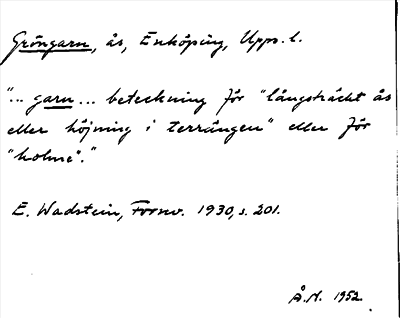 Gröngarn, ås, Enköping, Upps. l.
"... garn ... beteckning för "långsträckt ås
eller höjning i terrängen" eller för
"holme"."
E. Wadstein, Fornv. 1930, s. 201.
Å.N. 1952.